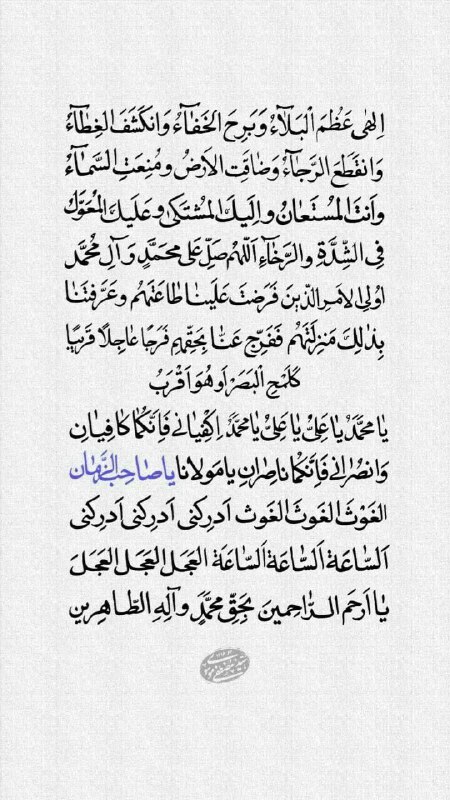 اِلهٰی عَظُمَ الْبَلآءُ وَبَرِحَ الخَفآءُ وَانکَشَفَ الغِطآءُ
وَانقَطَعَ الرَّجآءُ وَضاقَتِ الاَرضُ ومُنِعَتِ السَّمآءُ
واَنتَ المُستَعانُ واِلَیكَ المُشتَکیٰ وعَلَیكَ المُعَوَّلُ
فِی الشِّدَّةِ والرَّخآءِ اَللّهُمَّ صَلِّ عَلیٰ مُحَمَّدٍ وَآلِ مُحَمَّدٍ
اوُلِی الاَمرِ الَّذینَ فَرَضتَ عَلَینا طاعَتَهُم وعَرَّفتَنا
بِذٰلِكَ مَنزِلَتَهُم فَفَرِّج عَنّا بِحَقِّهِم فَرَجًا عاجِلًا قَریبًا
کَلَمْحِ الْبَصَرِ اَو هُوَ اَقرَبُ
یا مُحَمَّدُ یا عَلِیُّ یا عَلِیُّ یا مُحَمَّدُ اِکفِیانی فَاِنَّکُما کافِیانِ
وَانصُرانی فَاِنَّکُما ناصِرانِ یا مَولانا یا صاحِبَ الزَّمانِ
الغَوْثَ الغَوثَ الغَوثَ اَدرِکنی اَدرِکنی اَدرِکنی
اَلسّاعَةَ اَلسّاعَةَ اَلسّاعَةَ العَجَلَ العَجَلَ العَجَلَ
یا اَرحَمَ الرّاحِمینَ بِحَقِّ مُحَمَّدٍ وآلِهِ الطّاهِرینَ